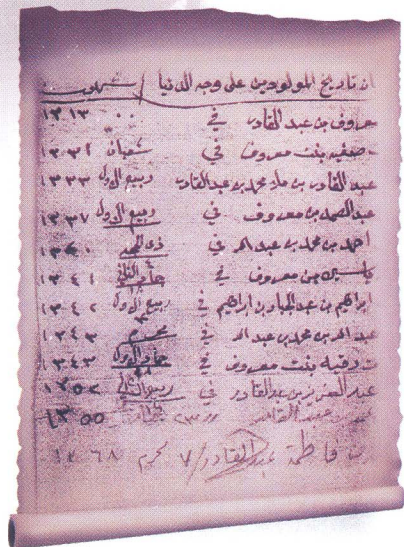 ان تاريخ المولودين على وجه الدنيا / شهر
معروف بن عبد القادر في ٠٠ ١٣١٣
صفيه بنت معروف في شعبان ١٣٣١
عبد القادر بن ملا محمد بن عبدالقادر ربيع الاول ١٣٣٣
عبدالصمد بن معروف في ربيع الاول ١٣٣٧
احمد بن محمد بن عبد في ذي الحجه
ياسين بن معروف في ١٣٤١
ابراهيم بن عبد الجبار بن ابراهيم في ربيع الاول ١٣٤٢
بن محمد بن عبد في محرم ١٣٤٣
رقيه بنت معروف في جماد الاول ١٣٤٣
عبد العزيز بن عبدالقادر في ربيع ١٣٥٢
بن عبد القادر ١٣٥٥
فاطمة عبدالقادر / ٧ محرم ١٣٦٨